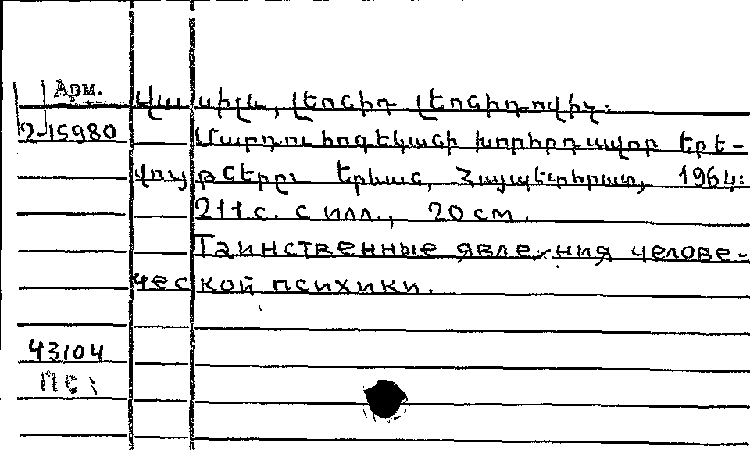 Арм.
Վասիլև, Լեոնիդ Լեոնիդովիչ.
2-15980
Մարդու հոգեկանի խորհրդավոր երե-
վույթները: Երևան, Հայպետհրատ, 1964:
211 с. с илл., 20 см.
Таинственные явления челове-
ческой психики.
43104